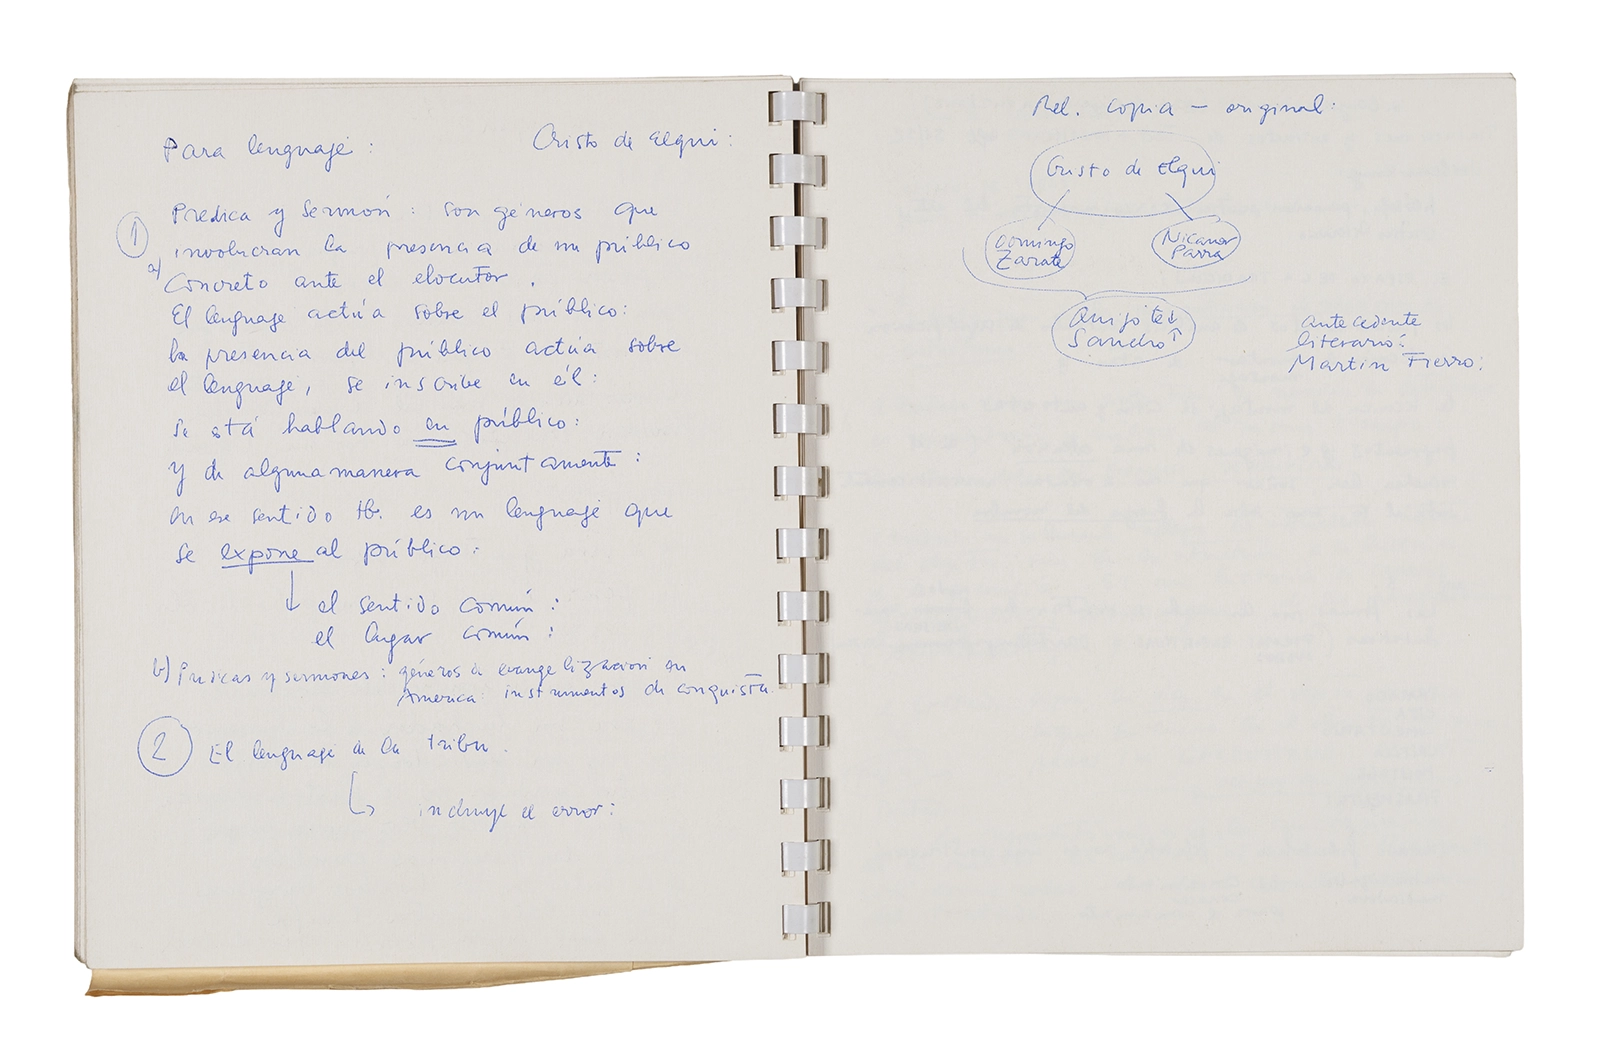 Para lenguaje: Cristo de Elqui:
Predica y sermón: son géneros que
1 involucran la presencia de un público
a) concreto ante el elocutor.
El lenguaje actúa sobre el público:
la presencia del público actúa sobre
el lenguaje, se inscribe en él:
se está hablando en público:
y de alguna manera conjuntamente:
en ese sentido tb. es un lenguaje que
se expone al público:
↓ el sentido común:
el lugar común:
b) Prédicas y sermones: géneros de evangelización en
America: instrumentos de conquista.
2 El lenguaje de la tribu.
↳ incluye el error:
Rel. copia – original:
Cristo de Elqui
Domingo
Zarate
Nicanor
Parra
Quijote ↓
Sancho ↑
antecedente
literario:
Martin Fierro: